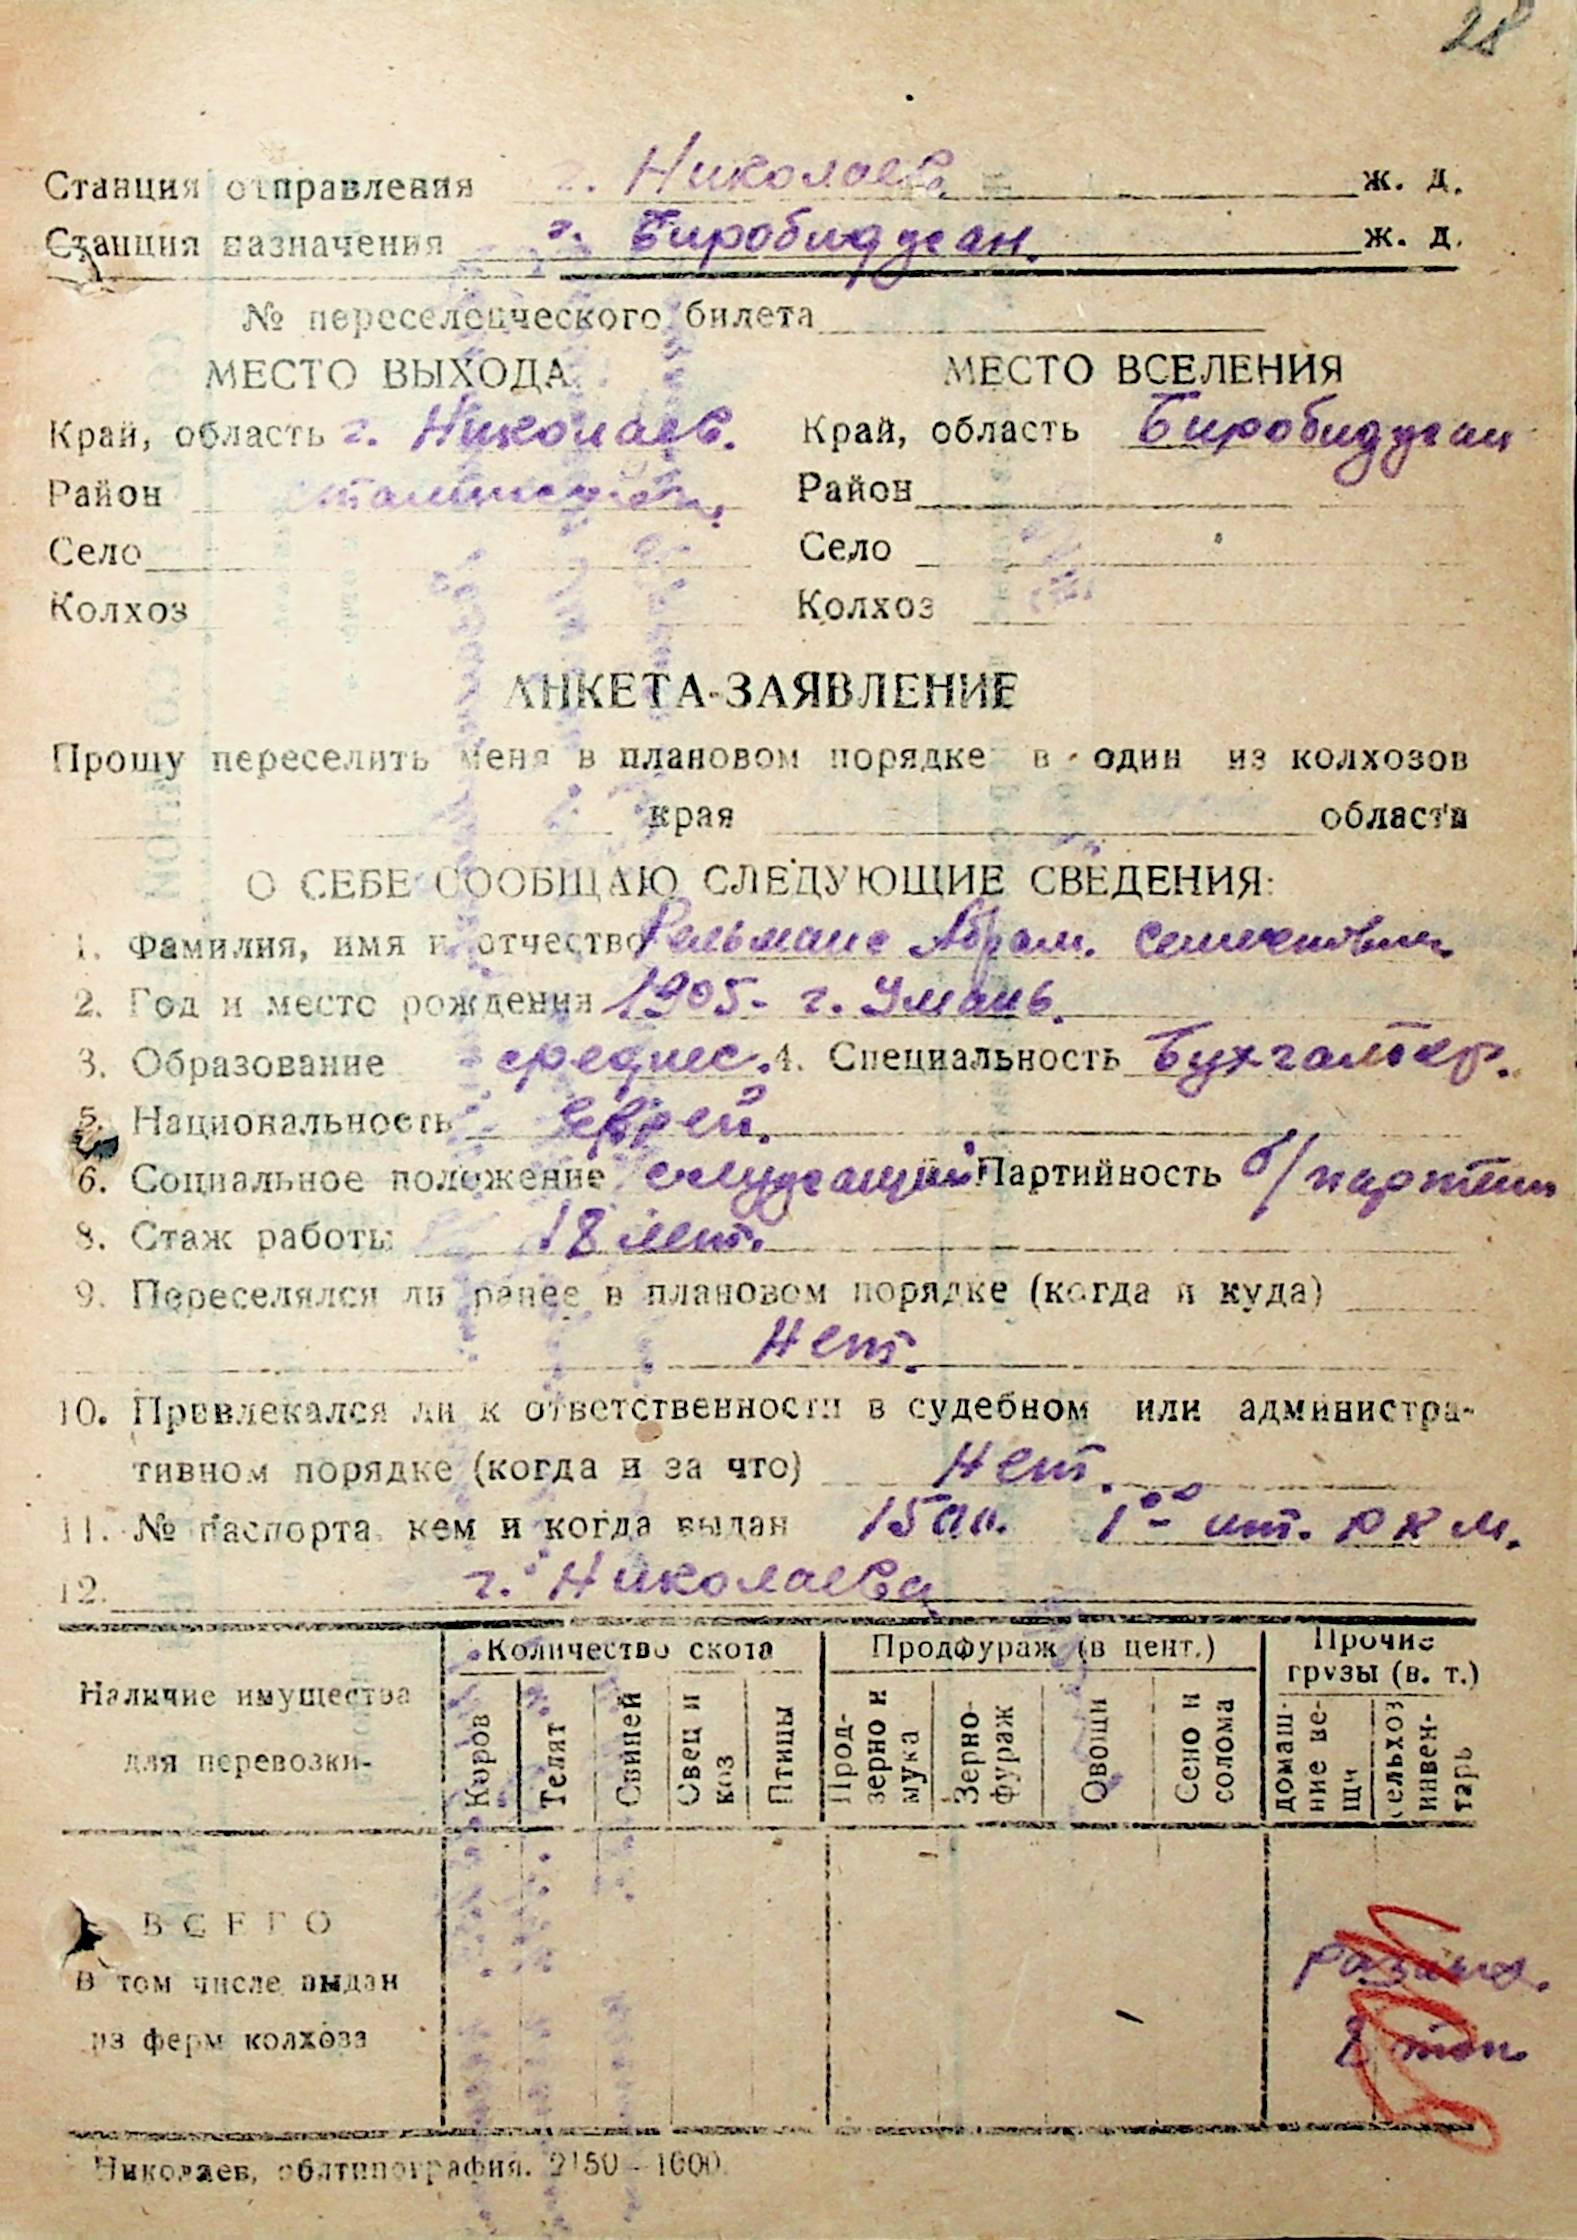 28
Станция отправления г. Николаев. ж. д.
Станция назначения г. Биробиджан. ж. д.
№ переселенческого билета
МЕСТО ВЫХОДА МЕСТО ВСЕЛЕНИЯ
Край, область г. Николаев. Край, область Биробиджан
Район Сталинский. Район
Село Село
Колхоз Колхоз
АНКЕТА-ЗАЯВЛЕНИЕ
Прошу переселить меня в плановом порядке в один из колхозов
края области
О СЕБЕ СООБЩАЮ СЛЕДУЮЩИЕ СВЕДЕНИЯ:
1. Фамилия, имя и отчество Абрам.
2. Год и место рождения 1905- г. Умань.
3. Образование среднее. 4. Специальность Бухгалтер.
5. Национальность Еврей.
6. Социальное положение служащий Партийность б/партийн
8. Стаж работы 18 лет.
9. Переселялся ли ранее в плановом порядке (когда и куда)
Нет.
10. Привлекался ли к ответственности в судебном или администра-
тивном порядке (когда и за что) Нет.
11. № паспорта, кем и когда выдан
12. г. Николаева
Наличие имущества для перевозки-
Количество скота Продфураж (в цент.) Прочие грузы (в. т.)
Коров Телят Свиней Овец и коз Птицы Прод-зерно и мука Зерно-фураж Овощи Сено и солома домаш-ние ве-щи сельхоз инвен-тарь
ВСЕГО
В том числе выдан
из ферм колхоза
2 тон
Николаев, облтипография. 2150—1000.